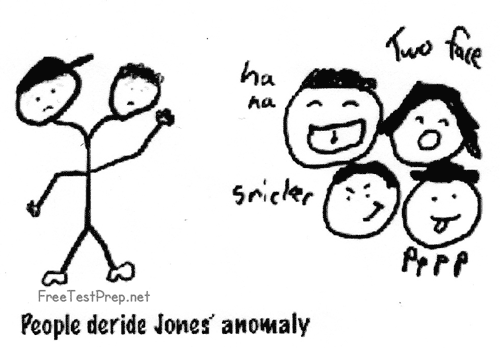 Two face
ha
ha
snicker
PPPP
FreeTestPrep.net
People deride Jones' anomaly